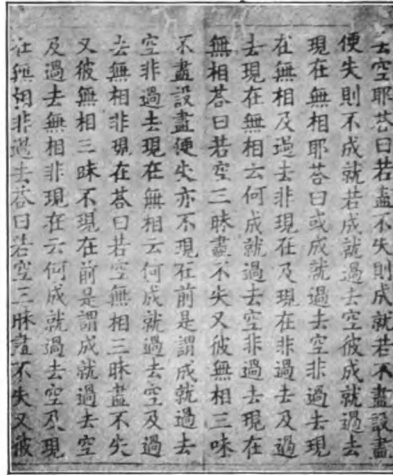 去空耶荅曰若盡不失則成就若不盡設盡
便失則不成就若成就過去空彼成就過去
現在無相耶荅曰或成就過去空非過去現
在無相及過去非現在及現在非過去及過
去現在無相云何成就過去空非過去現在
無相荅曰若空三昧盡不失又彼無相三昧
不盡設盡便失亦不現在前是謂成就過去
空非過去現在無相云何成就過去空及過
去無相非現在荅曰若空無相三昧盡不失
又彼無相三昧不現在前是謂成就過去空
及過去無相非現在云何成就過去空及現
在無相非過去荅曰若空三昧盡不失又彼